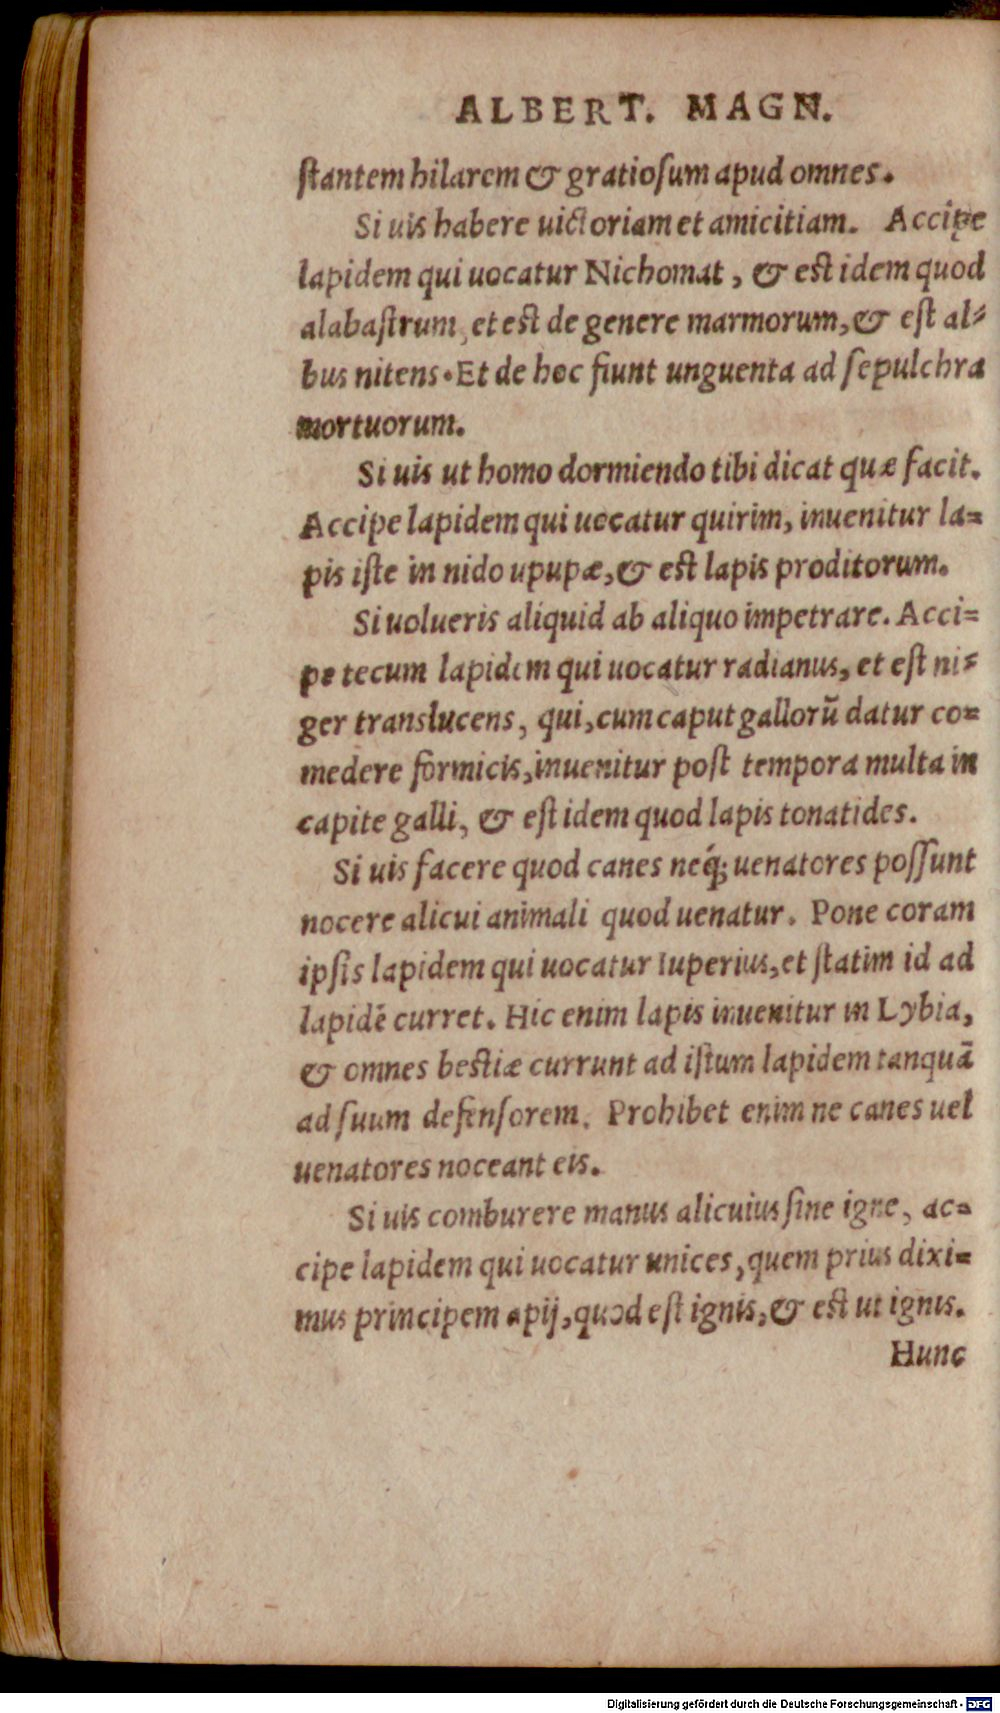 ALBERT. MAGN.
stantem hilarem & gratiosum apud omnes.
Si uis habere uictoriam et amicitiam. Accipe
lapidem qui uocatur Nichomat, & est idem quod
alabastrum, et est de genere marmorum, & est al=
bus nitens. Et de hoc fiunt unguenta ad sepulchra
mortuorum.
Si uis ut homo dormiendo tibi dicat quæ facit.
Accipe lapidem qui uocatur quirim, inuenitur la=
pis iste in nido upupæ, & est lapis proditorum.
Si uolueris aliquid ab aliquo impetrare. Acci=
pe tecum lapidem qui uocatur radianus, et est ni=
ger translucens, qui, cum caput gallorũ datur co=
medere formicis, inuenitur post tempora multa in
capite galli, & est idem quod lapis tonatides.
Si uis facere quod canes neq́; uenatores possunt
nocere alicui animali quod uenatur. Pone coram
ipsis lapidem qui uocatur Iuperius, et statim id ad
lapidē curret. Hic enim lapis inuenitur in Lybia,
& omnes bestiæ currunt ad istum lapidem tanquā
ad suum defensorem. Prohibet enim ne canes uel
uenatores noceant eis.
Si uis comburere manus alicuius sine igne, ac=
cipe lapidem qui uocatur unices, quem prius dixi=
mus principem apij, quod est ignis, & est ut ignis.
Hunc
Digitalisierung gefördert durch die Deutsche Forschungsgemeinschaft - DFG